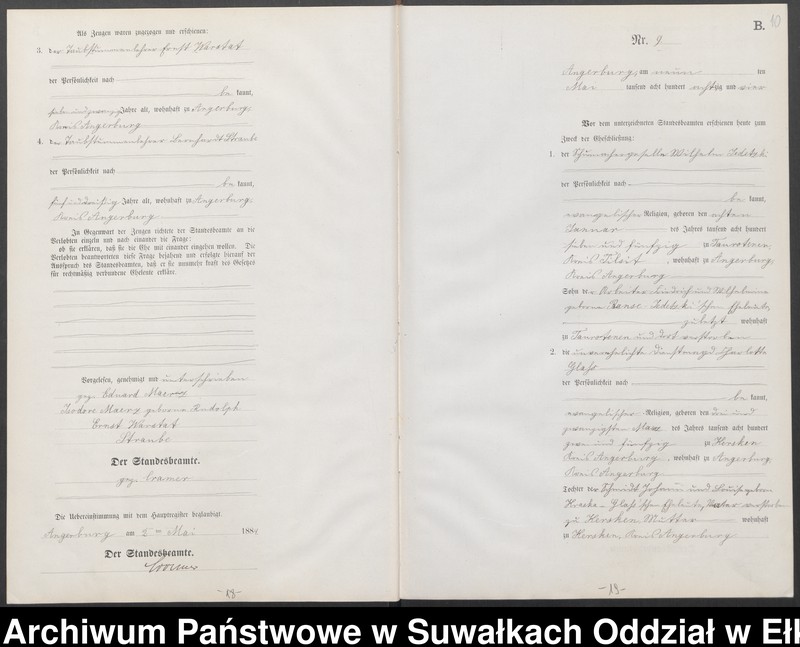 Als Zeugen waren zugezogen und erschienen:
3. der Taubstummenlehrer Ernst Warstat
der Persönlichkeit nach
be kannt,
Jahre alt, wohnhaft zu Angerburg,
Kreis Angerburg
4. der Taubstummenlehrer Bernhardt Straube
der Persönlichkeit nach
be kannt,
fünfunddreißig Jahre alt, wohnhaft zu Angerburg,
Kreis Angerburg
In Gegenwart der Zeugen richtete der Standesbeamte an die
Verlobten einzeln und nach einander die Frage:
ob sie erklären, daß sie die Ehe mit einander eingehen wollen. Die
Verlobten beantworteten diese Frage bejahend und erfolgte hierauf der
Ausspruch des Standesbeamten, daß er sie nunmehr kraft des Gesetzes
für rechtmäßig verbundene Eheleute erkläre.
Vorgelesen, genehmigt und unterschrieben
gez. Eduard Maerz
Teodore Maerz geborene Rudolph
Ernst Warstat
Straube
Der Standesbeamte.
gez. Cramer
Die Uebereinstimmung mit dem Hauptregister beglaubigt.
Angerburg am 5ten Mai 1884
Der Standesbeamte.
Cramer
-18-
B. 10
Nr. 9
Angerburg, am neun ten
Mai tausend acht hundert achtzig und vier
Vor dem unterzeichneten Standesbeamten erschienen heute zum
Zweck der Eheschließung:
1. der Schuhmachergeselle Wilhelm
der Persönlichkeit nach
be kannt,
evangelischer Religion, geboren den achten
Januar des Jahres tausend acht hundert
sieben und fünfzig zu
Kreis Tilsit, wohnhaft zu Angerburg,
Kreis Angerburg
Sohn der Arbeiter Friedrich und Wilhelmine
geborene 'schen Eheleute,
zuletzt wohnhaft
zu und dort verstorben
2. die unverehelichte Dienstmagd Charlotte
Glaß
der Persönlichkeit nach
be kannt,
evangelischer Religion, geboren den drei und
zwanzigsten Mai des Jahres tausend acht hundert
zwei und fünfzig zu Hersken
Kreis Angerburg, wohnhaft zu Angerburg,
Kreis Angerburg
Tochter der Schmidt Johann und Louise geborene
Glaß'schen Eheleute, Vater verstorben
zu Hersken, Mutter wohnhaft
zu Hersken, Kreis Angerburg
-19-
Archiwum Państwowe w Suwałkach Oddział w Ełk